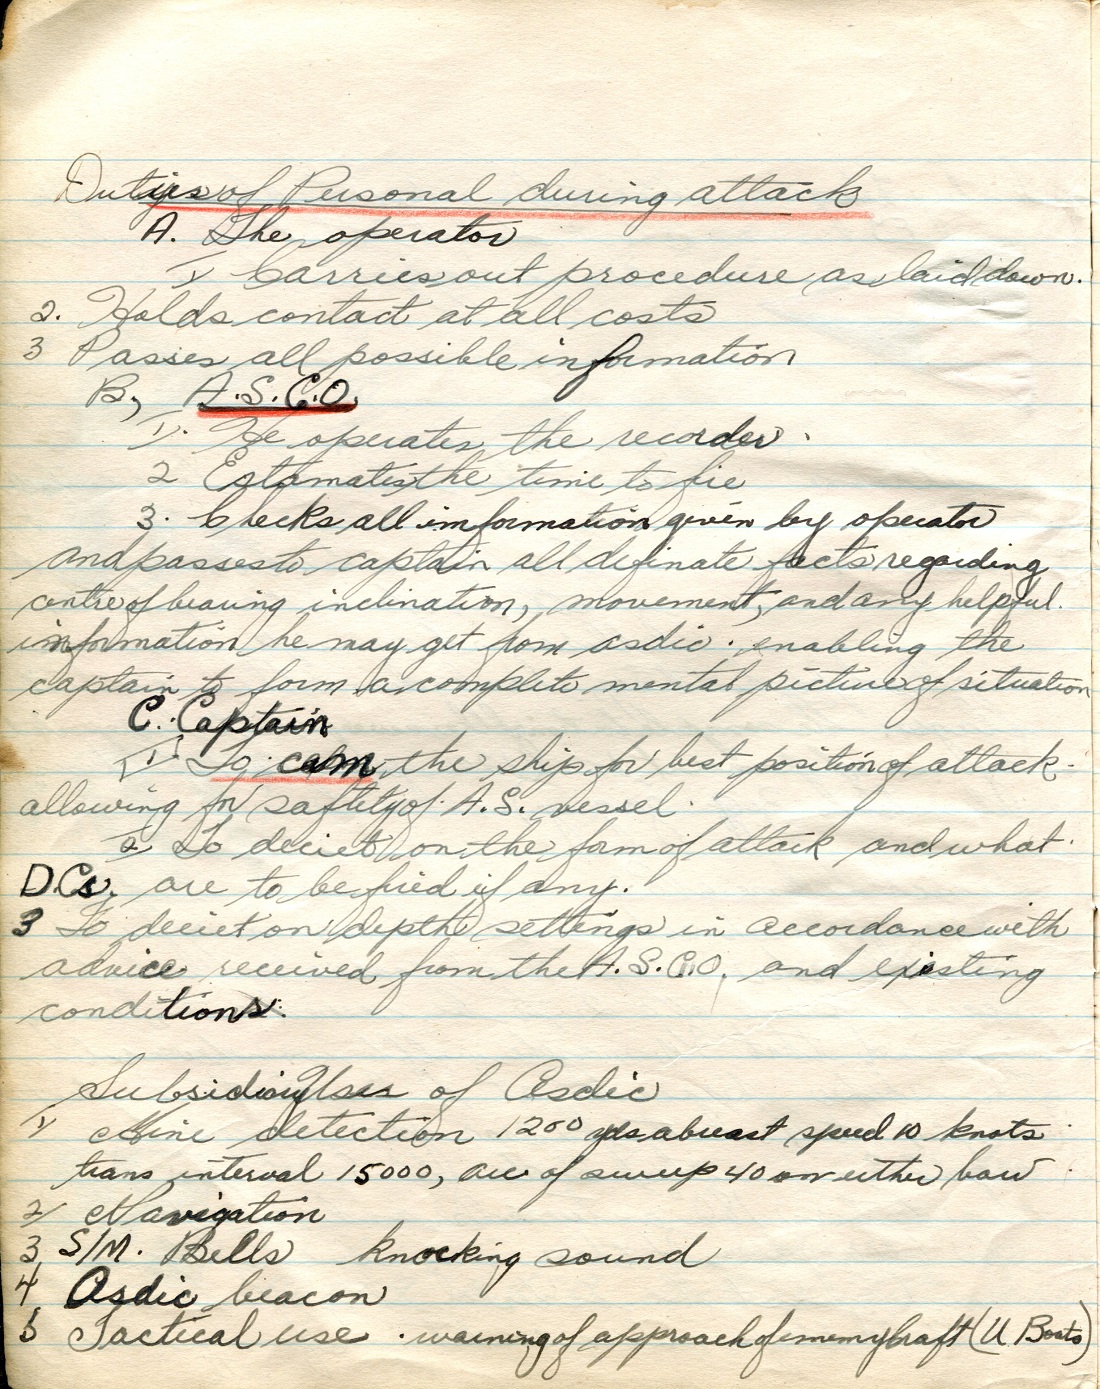 Duties of Personal during attack
A. The operator
1) Carries out procedure as laid down.
2. Holds contact at all costs
3 Passes all possible information
B, A.S.C.O.
1). He operates the recorder.
2 Estamates the time to fie
3. Checks all information given by operator
and passes to captain all definate facts regarding
centre of bearing inclination, movement, and any helpful.
information he may get from asdic. enabling the
captain to form a complete mental picture of situation
C. Captain
1) To the ship for best position of attack.
allowing for saftety of A.S. vessel.
2 To deciet on the form of attack and what.
D.Cs, are to be fired if any.
3 To deciet on depth settings in accordance with
advice received from the A.S.C.O. and existing
conditions.
Subsidiary Uses of Asdic
1) Mine detection 1200 yds abreast speed 10 knots
trans interval 15000, arc of sweep 40 on either bow
2/ Navigation
3 S/M. Bells knocking sound
4, Asdic beacon
5 Tactical use . warning of approach of enemy craft (U Boats)